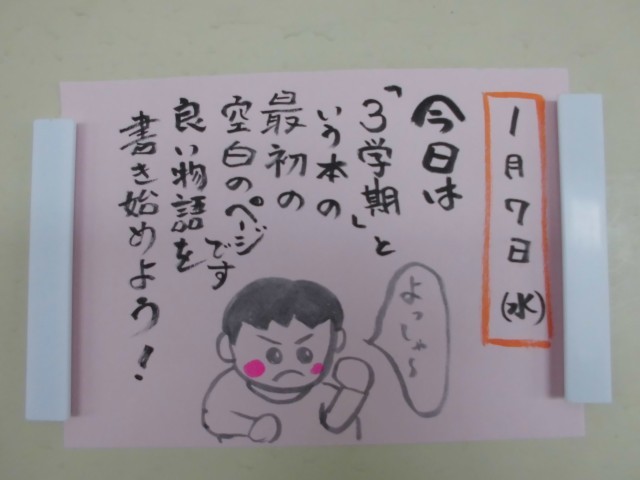 1月7日(水)
今日は
「3学期」と
いう本の
最初の
空白のページ
です
良い物語を
書き始めよう!
よっしゃ~